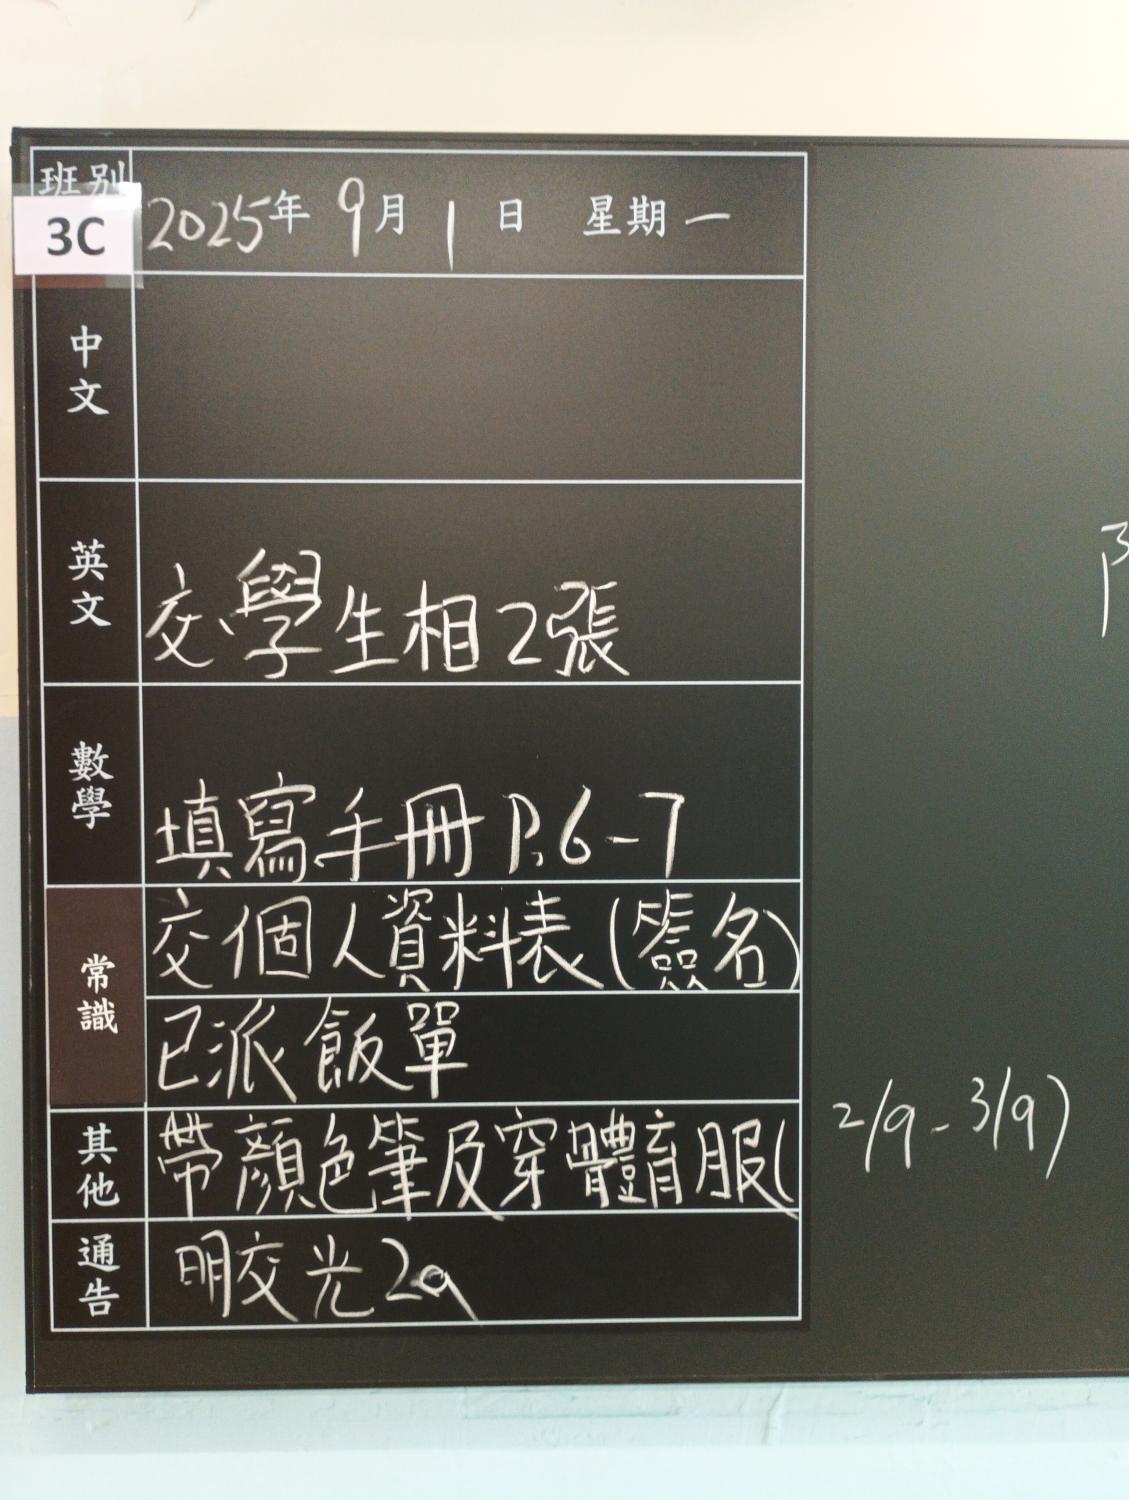 班別
3C
2025年 9月 1日 星期一
中文
英文
交學生相2張
數學
填寫手冊 P.6-7
常識
交個人資料表(簽名)
已派飯單
其他
帶顏色筆及穿體育服(2/9-3/9)
通告
明交光2a